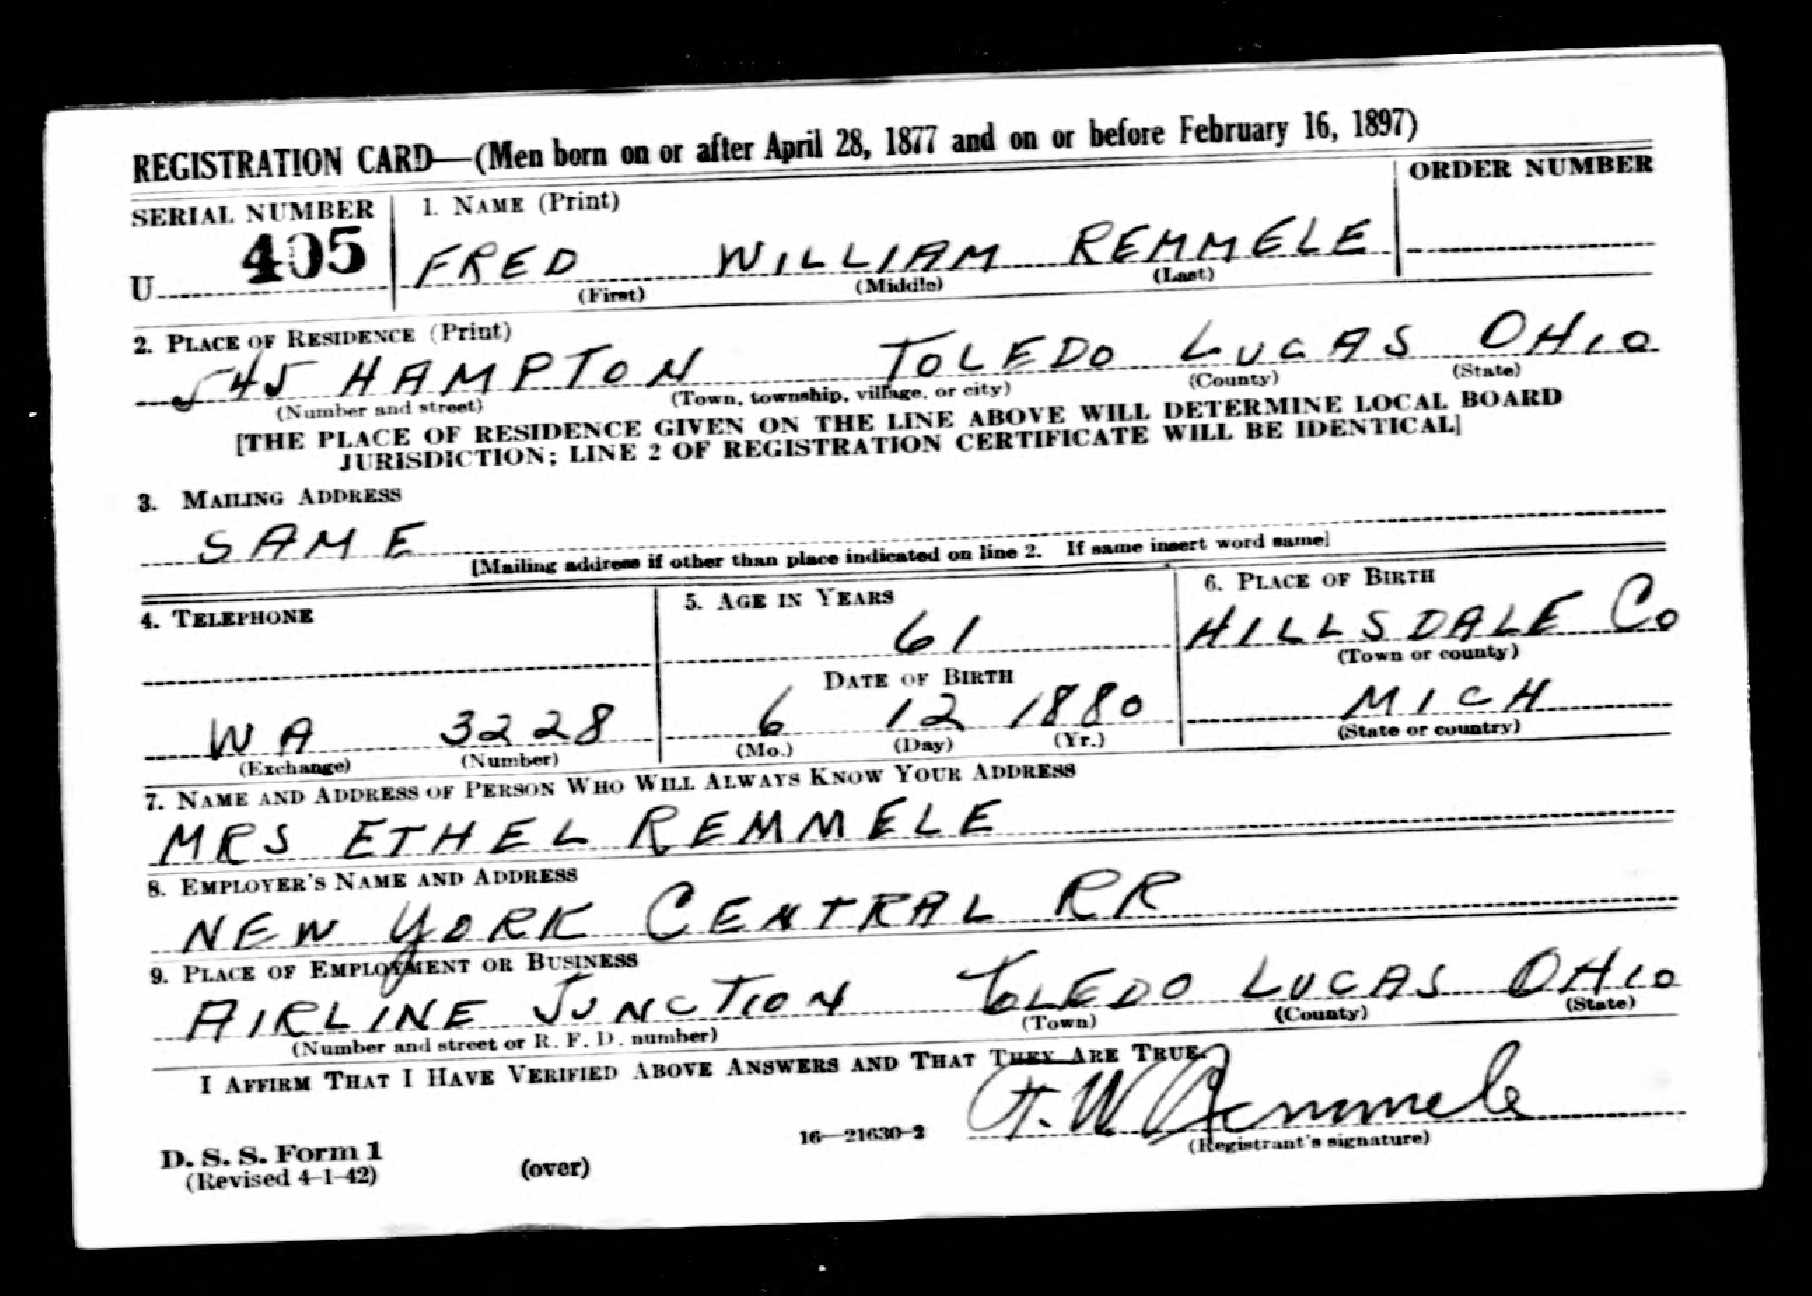 REGISTRATION CARD—(Men born on or after April 28, 1877 and on or before February 16, 1897)
SERIAL NUMBER
1. NAME (Print)
ORDER NUMBER
U 405
FRED WILLIAM REMMELE
(First) (Middle) (Last)
2. PLACE OF RESIDENCE (Print)
545 HAMPTON TOLEDO LUCAS OHIO
(Number and street) (Town, township, village, or city) (County) (State)
[THE PLACE OF RESIDENCE GIVEN ON THE LINE ABOVE WILL DETERMINE LOCAL BOARD
JURISDICTION; LINE 2 OF REGISTRATION CERTIFICATE WILL BE IDENTICAL]
3. MAILING ADDRESS
SAME
[Mailing address if other than place indicated on line 2. If same insert word same]
4. TELEPHONE
5. AGE IN YEARS
6. PLACE OF BIRTH
61
HILLSDALE CO
(Town or county)
DATE OF BIRTH
WA 3228
6 12 1880
MICH
(Exchange) (Number)
(Mo.) (Day) (Yr.)
(State or country)
7. NAME AND ADDRESS OF PERSON WHO WILL ALWAYS KNOW YOUR ADDRESS
MRS ETHEL REMMELE
8. EMPLOYER'S NAME AND ADDRESS
NEW YORK CENTRAL RR
9. PLACE OF EMPLOYMENT OR BUSINESS
AIRLINE JUNCTION TOLEDO LUCAS OHIO
(Number and street or R. F. D. number) (Town) (County) (State)
I AFFIRM THAT I HAVE VERIFIED ABOVE ANSWERS AND THAT THEY ARE TRUE.
F. W. Remmele
(Registrant's signature)
D. S. S. Form 1
(Revised 4-1-42)
(over)
16—21630-2